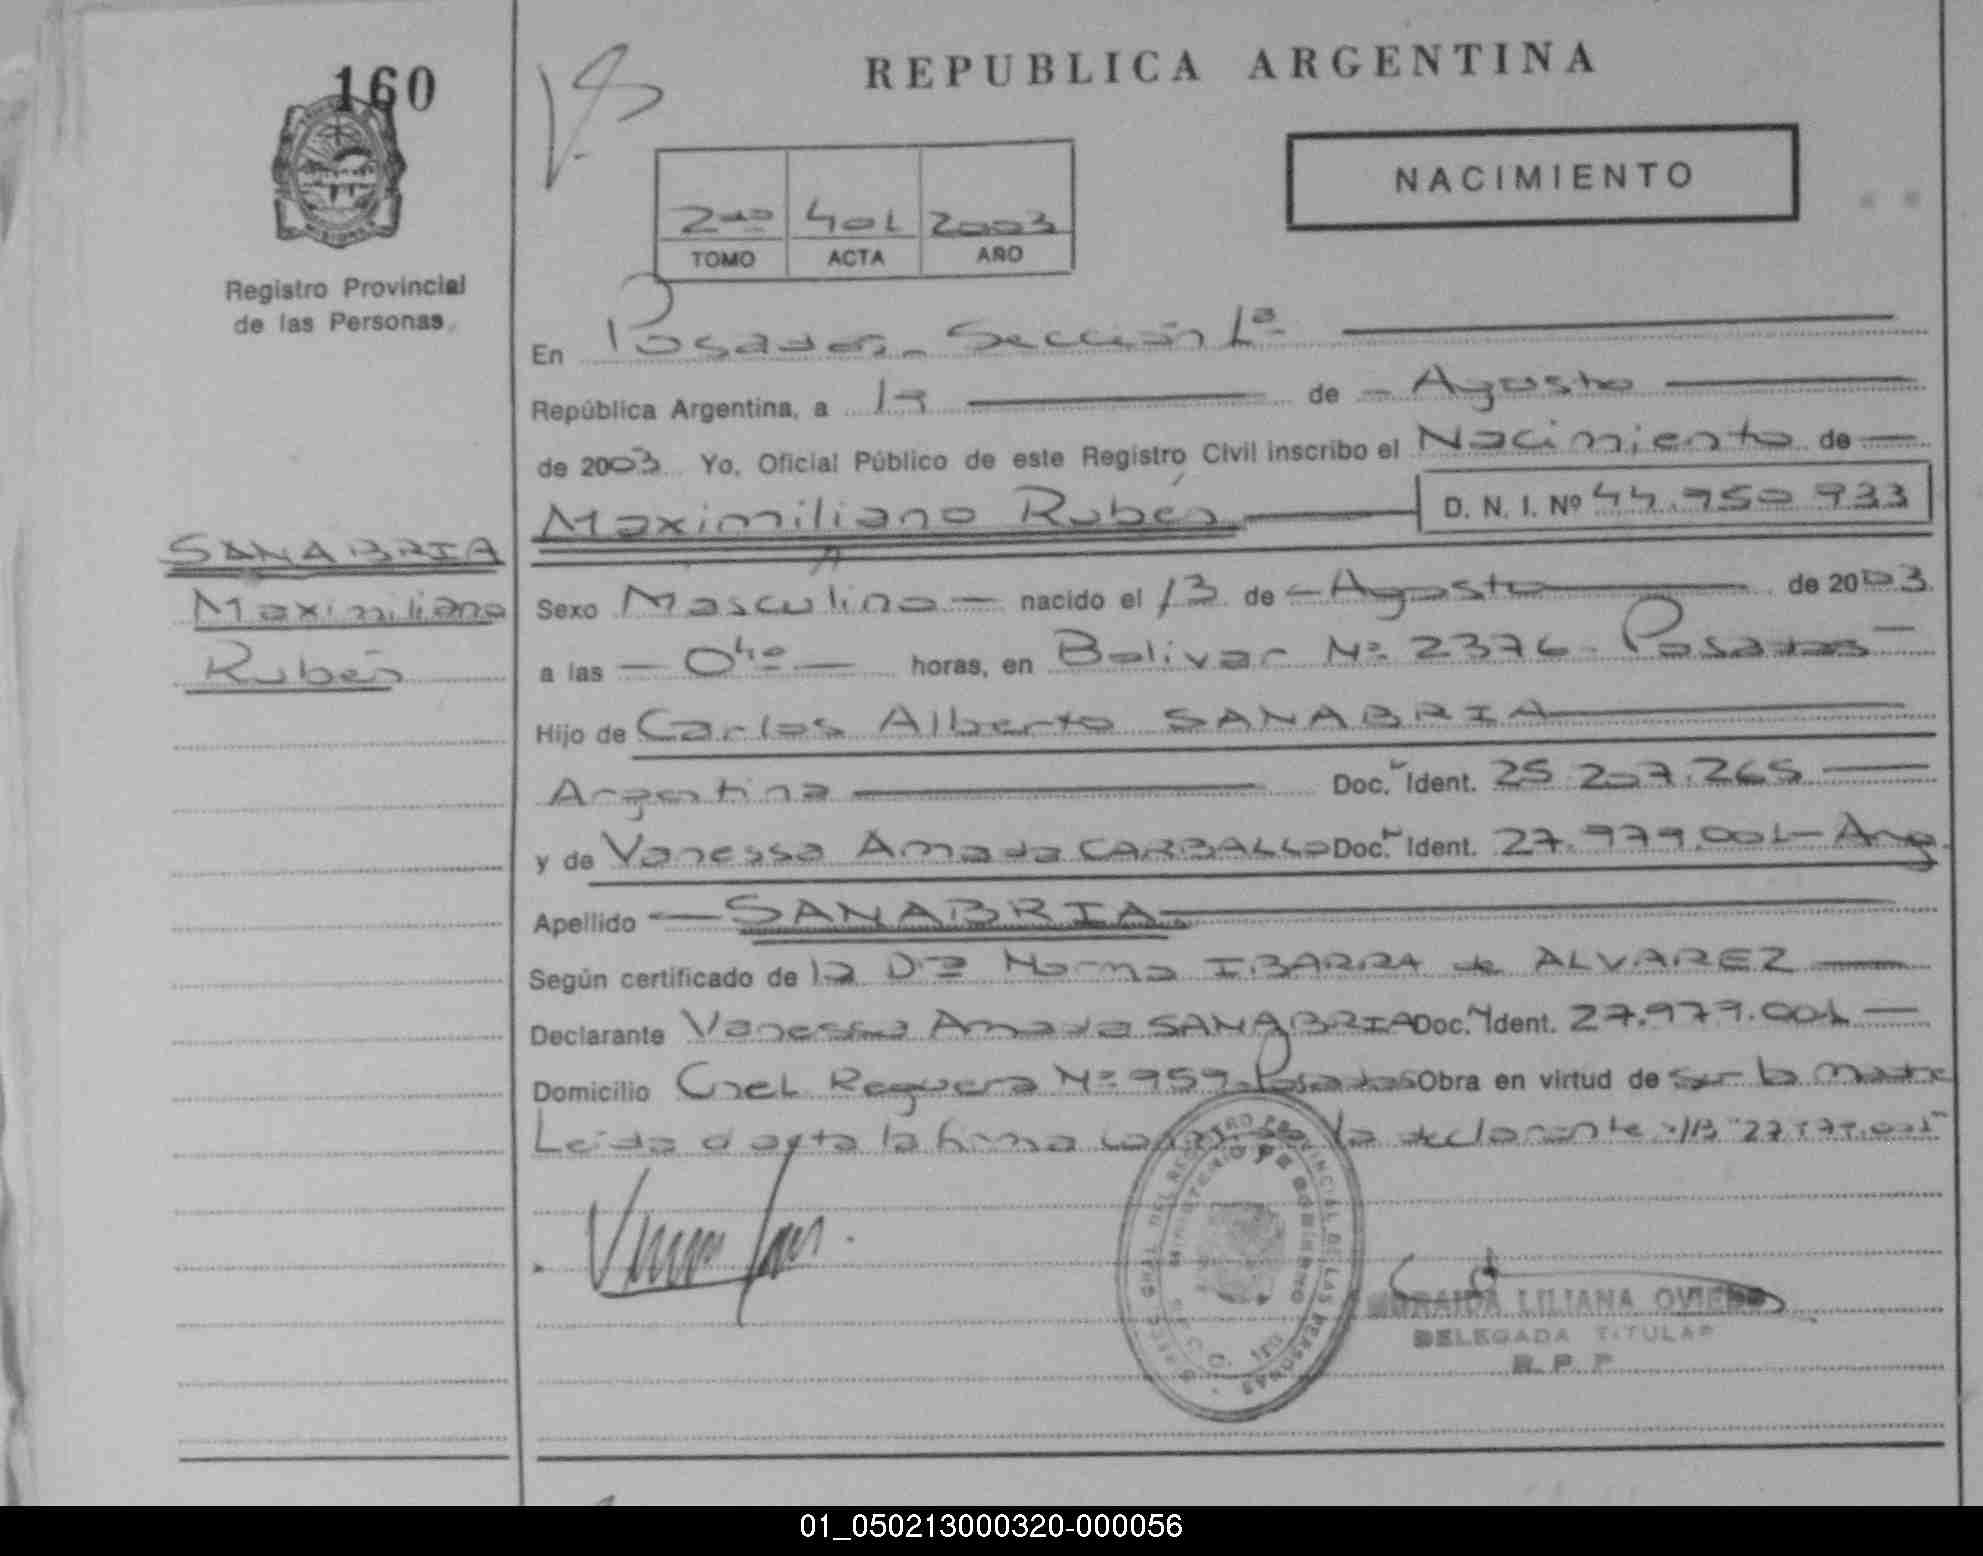 160
REPUBLICA ARGENTINA
NACIMIENTO
2do 401 2003
TOMO ACTA AÑO
Registro Provincial
de las Personas
En Posadas, Sección 1ª
República Argentina, a de Agosto
de 2003 Yo, Oficial Público de este Registro Civil inscribo el Nacimiento de
Maximiliano Rubén D. N. I. Nº 44.950.933
SANABRIA
Maximiliano
Rubén
Sexo Masculino nacido el 13 de Agosto de 2003
a las 0 horas, en Bolivar Nº 2376 - Posadas
Hijo de Carlos Alberto SANABRIA
Argentina Doc. Ident. 25.207.265
y de Vanessa Amada CARBALLO Doc. Ident. 27.979.001 - Arg.
Apellido SANABRIA.
Según certificado de la Dra Norma IBARRA de ALVAREZ
Declarante Vanessa Amada SANABRIA Doc. Ident. 27.979.001
Domicilio Cnel Reguera Nº 959 - Posadas Obra en virtud de ser la madre
Leída el acta la firma la declarante 27.979.001
REGISTRO PROVINCIAL DE LAS PERSONAS
MINISTERIO DE GOBIERNO
LILIANA OVIEDO
DELEGADA TITULAR
R. P. P.
01_050213000320-000056